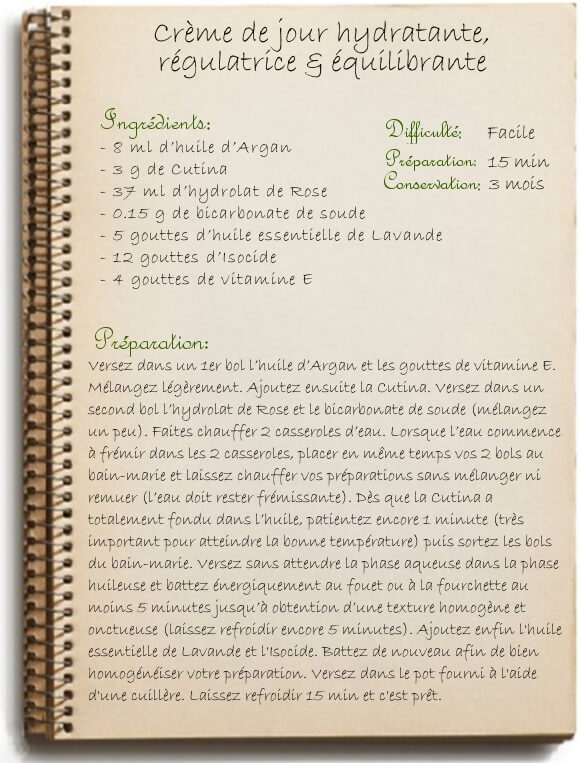 Crème de jour hydratante,
régulatrice & équilibrante
Ingrédients:
- 8 ml d'huile d'Argan
- 3 g de Cutina
- 37 ml d'hydrolat de Rose
- 0.15 g de bicarbonate de soude
- 5 gouttes d'huile essentielle de Lavande
- 12 gouttes d'Isocide
- 4 gouttes de vitamine E
Difficulté: Facile
Préparation: 15 min
Conservation: 3 mois
Préparation:
Versez dans un 1er bol l'huile d'Argan et les gouttes de vitamine E.
Mélangez légèrement. Ajoutez ensuite la Cutina. Versez dans un
second bol l'hydrolat de Rose et le bicarbonate de soude (mélangez
un peu). Faites chauffer 2 casseroles d'eau. Lorsque l'eau commence
à frémir dans les 2 casseroles, placer en même temps vos 2 bols au
bain-marie et laissez chauffer vos préparations sans mélanger ni
remuer (l'eau doit rester frémissante). Dès que la Cutina a
totalement fondu dans l'huile, patientez encore 1 minute (très
important pour atteindre la bonne température) puis sortez les bols
du bain-marie. Versez sans attendre la phase aqueuse dans la phase
huileuse et battez énergiquement au fouet ou à la fourchette au
moins 5 minutes jusqu'à obtention d'une texture homogène et
onctueuse (laissez refroidir encore 5 minutes). Ajoutez enfin l'huile
essentielle de Lavande et l'Isocide. Battez de nouveau afin de bien
homogénéiser votre préparation. Versez dans le pot fourni à l'aide
d'une cuillère. Laissez refroidir 15 min et c'est prêt.